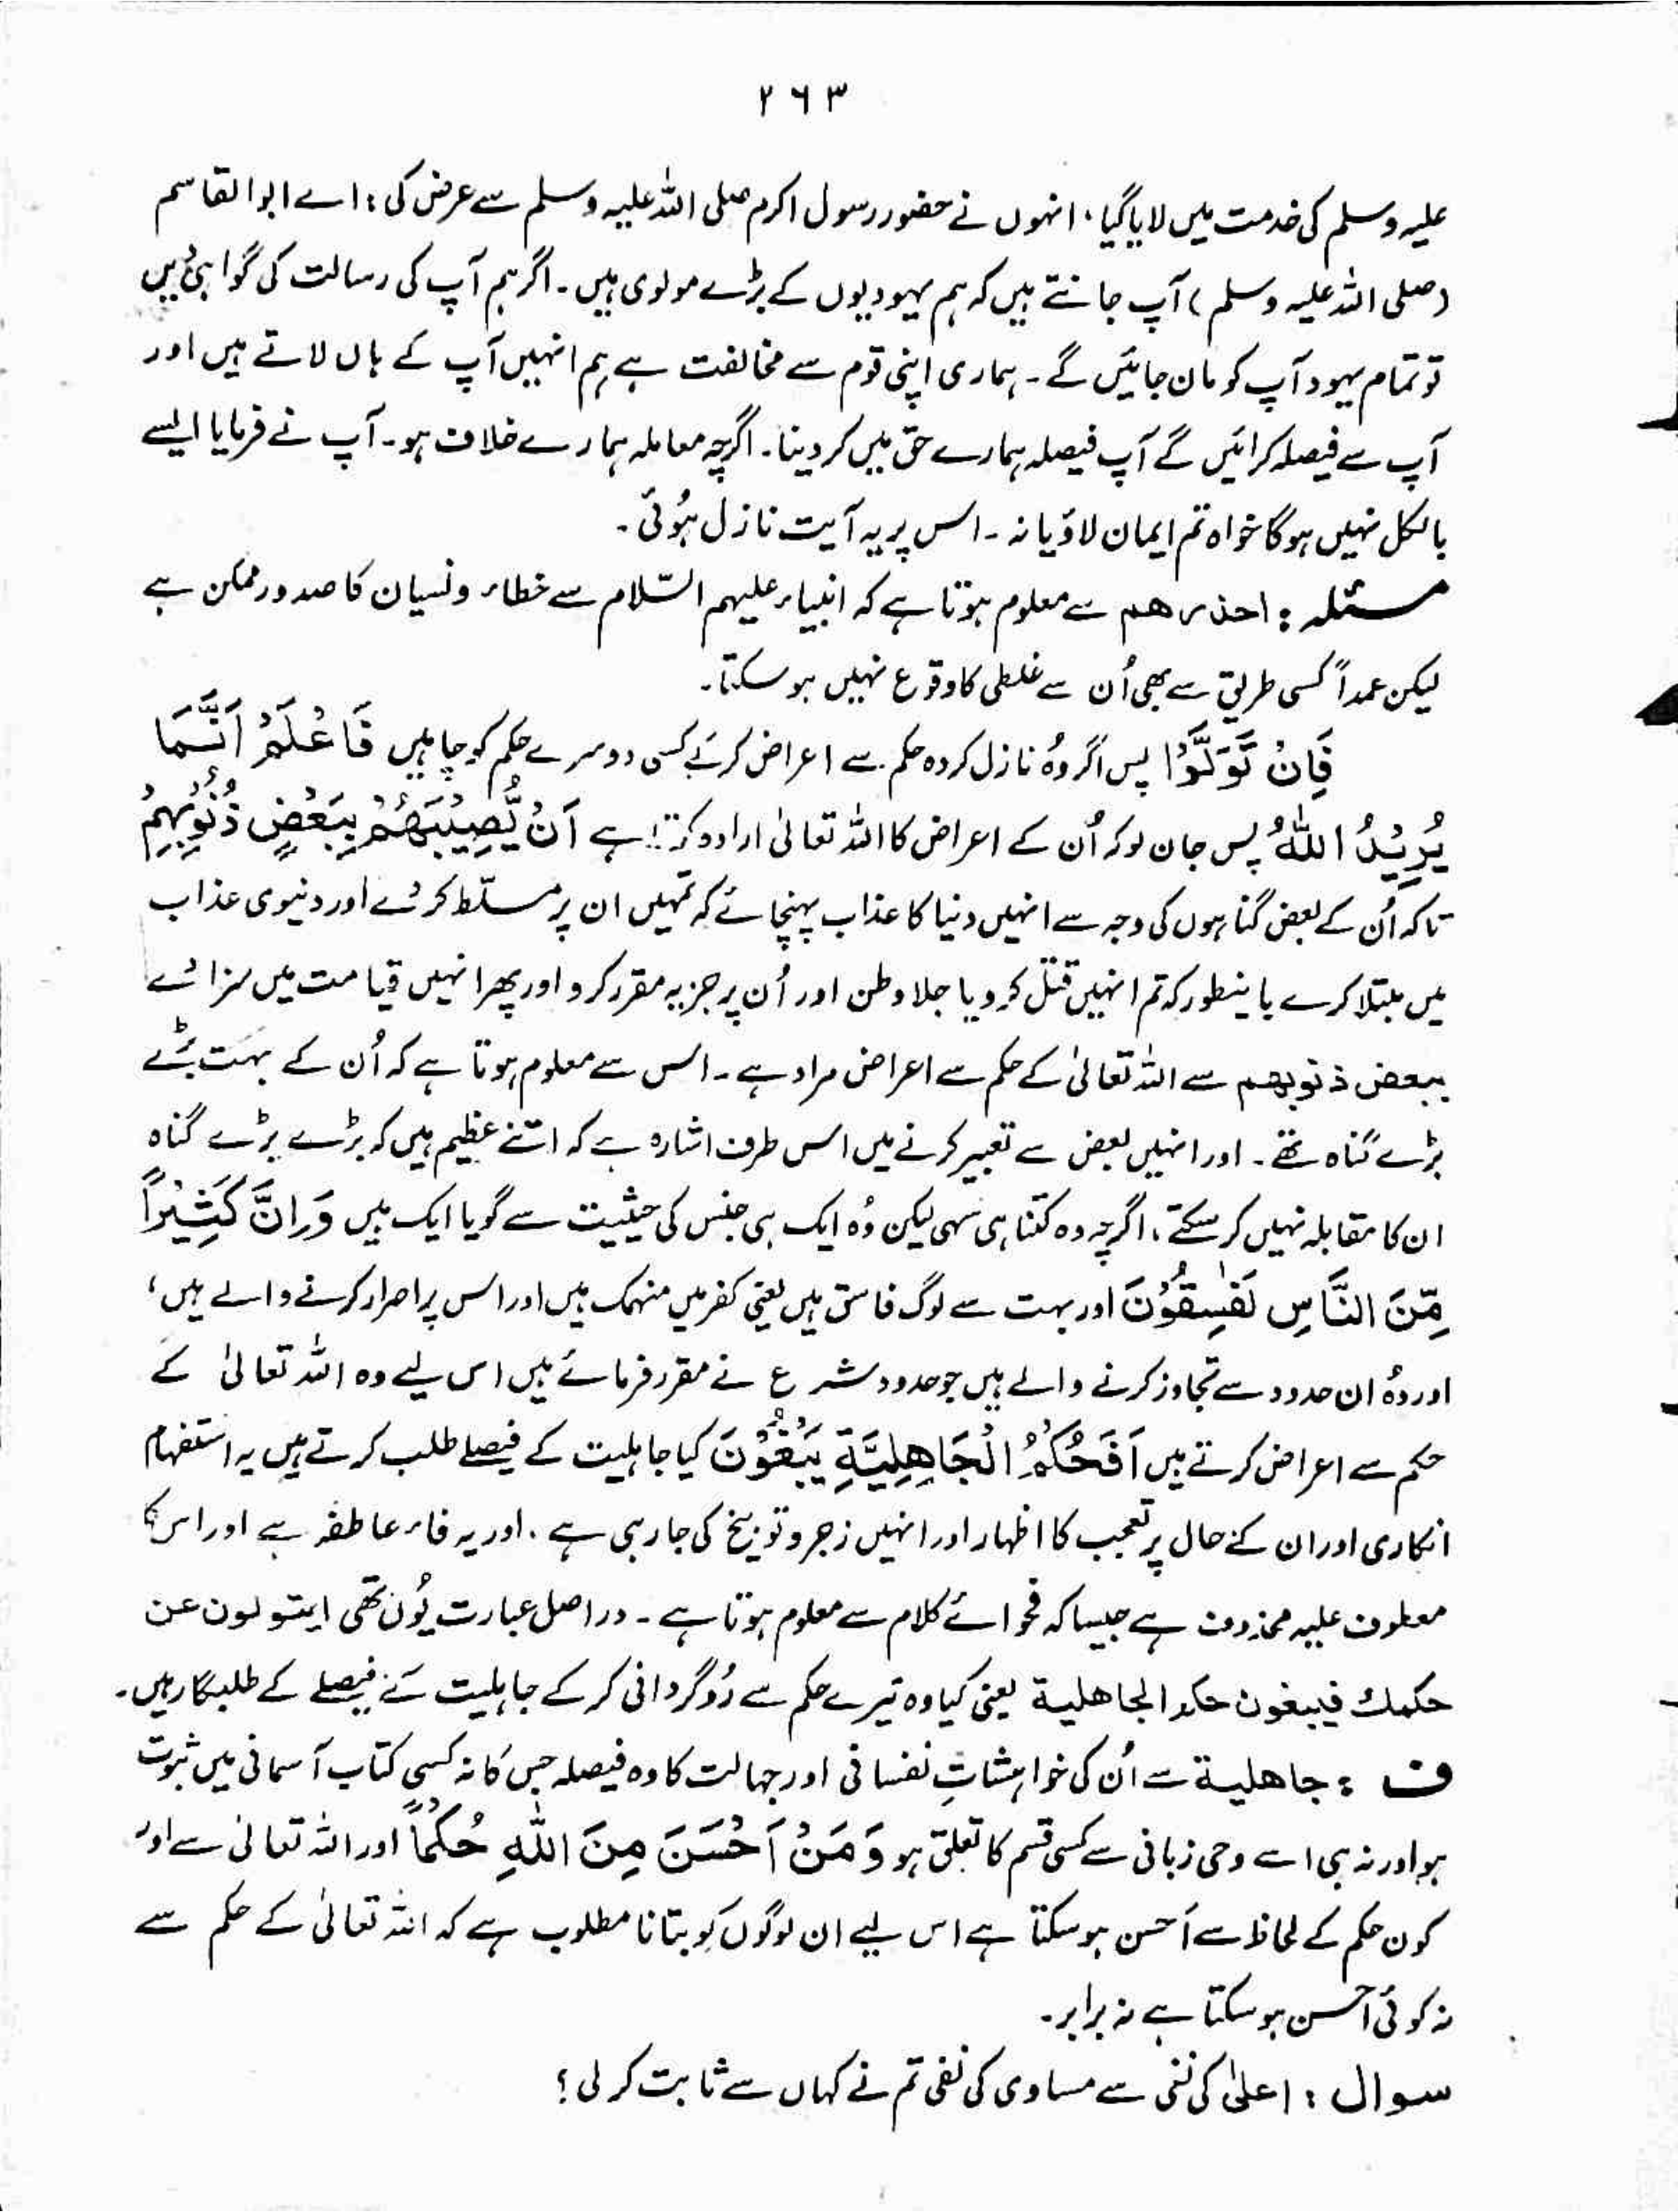 ۲۶۳
علیہ وسلم کی خدمت میں لایا گیا، انہوں نے حضور رسول اکرم صلی اللہ علیہ وسلم سے عرض کی: اے ابوالقاسم
(صلی اللہ علیہ وسلم) آپ جانتے ہیں کہ ہم یہودیوں کے بڑے مولوی ہیں۔ اگر ہم آپ کی رسالت کی گواہی دیں
تو تمام یہود آپ کو مان جائیں گے۔ ہماری اپنی قوم سے مخالفت ہے ہم انہیں آپ کے ہاں لاتے ہیں اور
آپ سے فیصلہ کرائیں گے آپ فیصلہ ہمارے حق میں کر دینا۔ اگرچہ معاملہ ہمارے خلاف ہو۔ آپ نے فرمایا ایسے
بالکل نہیں ہوگا خواہ تم ایمان لاؤ یا نہ۔ اس پر یہ آیت نازل ہُوئی۔
مسئلہ: احذرھم سے معلوم ہوتا ہے کہ انبیاء علیہم السّلام سے خطاء و نسیان کا صدور ممکن ہے
لیکن عمداً کسی طریق سے بھی اُن سے غلطی کا وقوع نہیں ہو سکتا۔
فَاِنْ تَوَلَّوْا پس اگر وُہ نازل کردہ حکم سے اعراض کرکے کسی دوسرے حکم کو چاہیں فَاعْلَمْ اَنَّمَا
یُرِیْدُ اللّٰہُ پس جان لو کہ اُن کے اعراض کا اللہ تعالیٰ ارادہ کرتا ہے اَنْ یُّصِیْبَھُمْ بِبَعْضِ ذُنُوْبِہِمْ
تاکہ اُن کے بعض گناہوں کی وجہ سے انہیں دنیا کا عذاب پہنچائے کہ تمہیں ان پر مسلّط کر دے اور دنیوی عذاب
میں مبتلا کرے باینطور کہ تم انہیں قتل کرو یا جلا وطن اور اُن پر جزیہ مقرر کرو اور پھر انہیں قیامت میں سزا دے
ببعض ذنوبھم سے اللہ تعالیٰ کے حکم سے اعراض مراد ہے۔ اس سے معلوم ہوتا ہے کہ اُن کے بہت بڑے
بڑے گناہ تھے۔ اور انہیں بعض سے تعبیر کرنے میں اس طرف اشارہ ہے کہ اتنے عظیم ہیں کہ بڑے بڑے گناہ
ان کا مقابلہ نہیں کر سکتے، اگرچہ وہ کتنا ہی سہی لیکن وُہ ایک ہی جنس کی حیثیت سے گویا ایک ہیں وَاِنَّ کَثِیْرًا
مِّنَ النَّاسِ لَفٰسِقُوْنَ اور بہت سے لوگ فاسق ہیں یعنی کفر میں منہمک ہیں اور اس پر اصرار کرنے والے ہیں،
اور وُہ ان حدود سے تجاوز کرنے والے ہیں جو حدود شرع نے مقرر فرمائے ہیں اس لیے وہ اللہ تعالیٰ کے
حکم سے اعراض کرتے ہیں اَفَحُکْمَ الْجَاھِلِیَّةِ یَبْغُوْنَ کیا جاہلیت کے فیصلے طلب کرتے ہیں یہ استفہام
انکاری اور ان کے حال پر تعجب کا اظہار اور انہیں زجر و توبیخ کی جا رہی ہے۔ اور یہ فاء عاطفہ ہے اور اس کا
معطوف علیہ محذوف ہے جیسا کہ فحوائے کلام سے معلوم ہوتا ہے۔ دراصل عبارت یُوں تھی ایتولون عن
حکمك فیبغون حکم الجاھلیة یعنی کیا وہ تیرے حکم سے رُوگردانی کر کے جاہلیت کے فیصلے کے طلبگار ہیں۔
ف: جاھلیة سے اُن کی خواہشاتِ نفسانی اور جہالت کا وہ فیصلہ جس کا نہ کسی کتاب آسمانی میں ثبوت
ہو اور نہ ہی اسے وحی ربانی سے کسی قسم کا تعلق ہو وَمَنْ اَحْسَنُ مِنَ اللّٰہِ حُکْمًا اور اللہ تعالیٰ سے اور
کون حکم کے لحاظ سے اَحسن ہو سکتا ہے اس لیے ان لوگوں کو بتانا مطلوب ہے کہ اللہ تعالیٰ کے حکم سے
نہ کوئی احسن ہو سکتا ہے نہ برابر۔
سوال: اعلیٰ کی نفی سے مساوی کی نفی تم نے کہاں سے ثابت کر لی؟